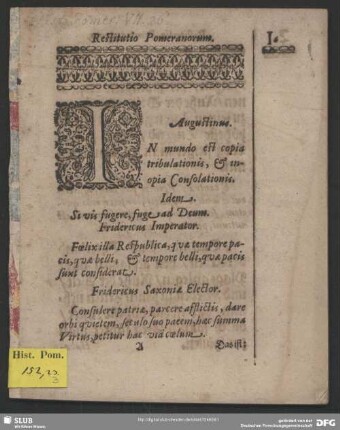 Restitutio Pomeranorum.
I.
Augustinus.
IN mundo est copia
tribulationis, & in-
opia Consolationis.
Idem.
Si vis fugere, fuge ad Deum.
Fridericus Imperator.
Fœlix illa Respublica, quæ tempore pa-
cis, quæ belli, & tempore belli, quæ pacis
sunt considerat.
Fridericus Saxoniæ Elector.
Consulere patriæ, parcere afflictis, dare
orbi quietem, seculo suo pacem, hæc summa
Virtus, petitur hac via cœlum.
A
Hist. Pom.
152,
3
SLUB
Wir führen Wissen.
gefördert von der
Deutschen Forschungsgemeinschaft
DFG